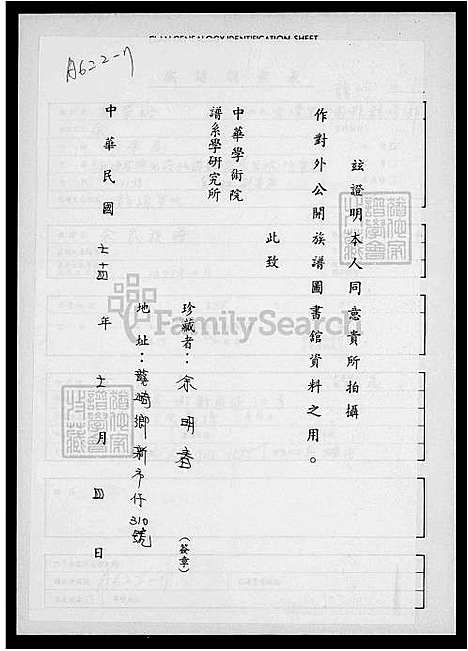 CLAN GENEALOGY IDENTIFICATION SHEET
A622-7
茲證明本人同意貴所拍攝
作對外公開族譜圖書館資料之用。
此致
中華學術院
譜系學研究所
珍藏者：余明
(簽章)
地址：龍崎鄉新市仔310號
中華民國 年 月 四 日
FamilySearch